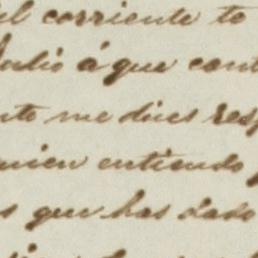 el corriente te
Julio á que cont
nto me dices resp
quien entiendo
s que has dado